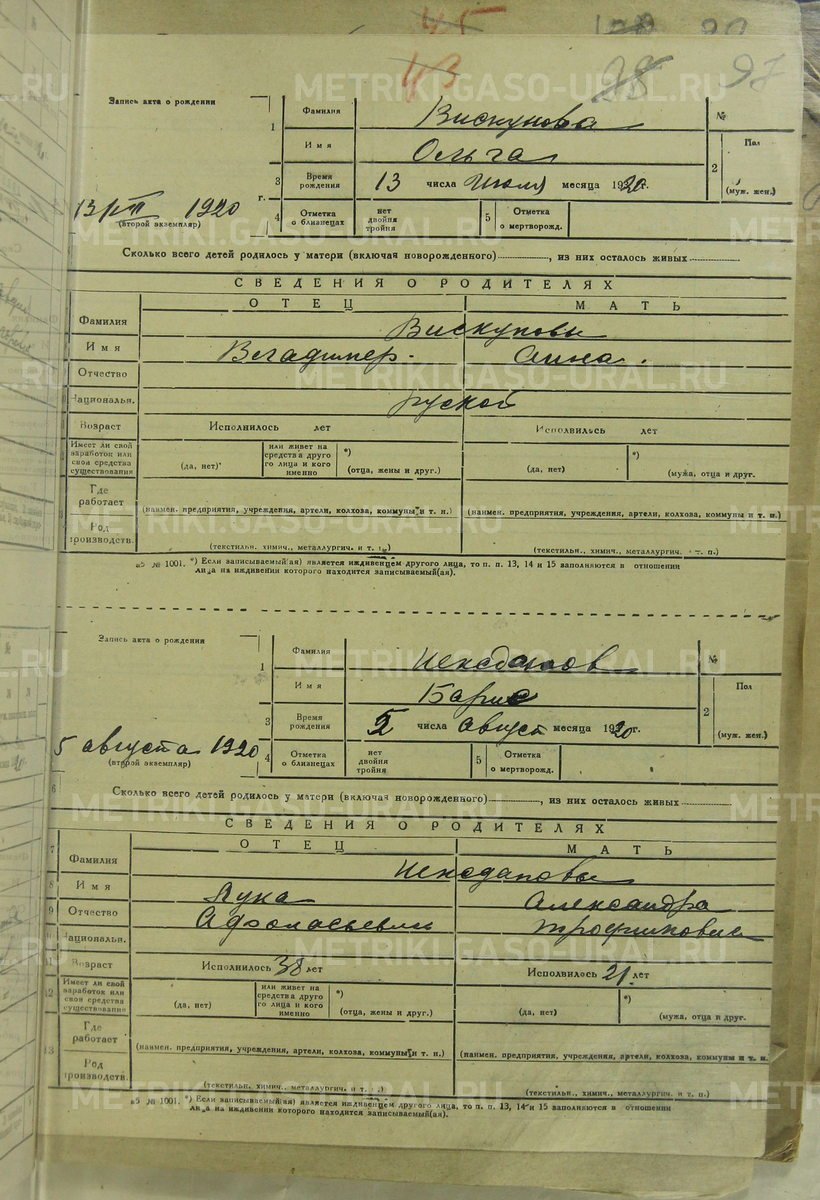 97
Запись акта о рождении
1
Фамилия
Вискунова
№
Имя
Ольга
2
Пол
(муж. жен.)
3
Время рождения
13 числа Июля месяца 1920г.
1920 г.
(второй экземпляр)
4
Отметка о близнецах
нет
двойня
тройня
5
Отметка о мертворожд.
Сколько всего детей родилось у матери (включая новорожденного), из них осталось живых
СВЕДЕНИЯ О РОДИТЕЛЯХ
ОТЕЦ
МАТЬ
Фамилия
Вискуновы
Имя
Владимер.
Анна.
Отчество
Национальн.
руской
Возраст
Исполнилось лет
Исполнилось лет
Имеет ли свой заработок или свои средства существования
(да, нет)
или живет на средства другого лица и кого именно
*)
(отца, жены и друг.)
(да, нет)
*)
(мужа, отца и друг.
Где работает
(наимен. предприятия, учреждения, артели, колхоза, коммуны и т. п.)
(наимен. предприятия, учреждения, артели, колхоза, коммуны и т. п.)
Род производств.
(текстильн. химич., металлургич. и т. п.)
(текстильн., химич., металлургич. и т. п.)
№ 1001. *) Если записываемый(ая) является иждивенцем другого лица, то п. п. 13, 14 и 15 заполняются в отношении
лица на иждивении которого находится записываемый(ая).
Запись акта о рождении
1
Фамилия
№
Имя
Барис
2
Пол
(муж. жен.)
3
Время рождения
5 числа август месяца 1920г.
5 августа 1920
(второй экземпляр)
4
Отметка о близнецах
нет
двойня
тройня
5
Отметка о мертворожд.
6
Сколько всего детей родилось у матери (включая новорожденного), из них осталось живых
СВЕДЕНИЯ О РОДИТЕЛЯХ
7
ОТЕЦ
МАТЬ
Фамилия
8
Имя
Лука
Александра
9
Отчество
Национальн.
Возраст
Исполнилось 38 лет
Исполнилось 21 лет
12
Имеет ли свой заработок или свои средства существования
(да, нет)
или живет на средства другого лица и кого именно
*)
(отца, жены и друг.)
(да, нет)
*)
(мужа, отца и друг.
13
Где работает
(наимен. предприятия, учреждения, артели, колхоза, коммуны и т. п.)
(наимен. предприятия, учреждения, артели, колхоза, коммуны и т. п.)
Род производств.
(текстильн. химич., металлургич. и т. п.)
(текстильн., химич., металлургич. и т. п.)
№ 1001. *) Если записываемый(ая) является иждивенцем другого лица, то п. п. 13, 14 и 15 заполняются в отношении
лица на иждивении которого находится записываемый(ая).
METRIKI.GASO-URAL.RU